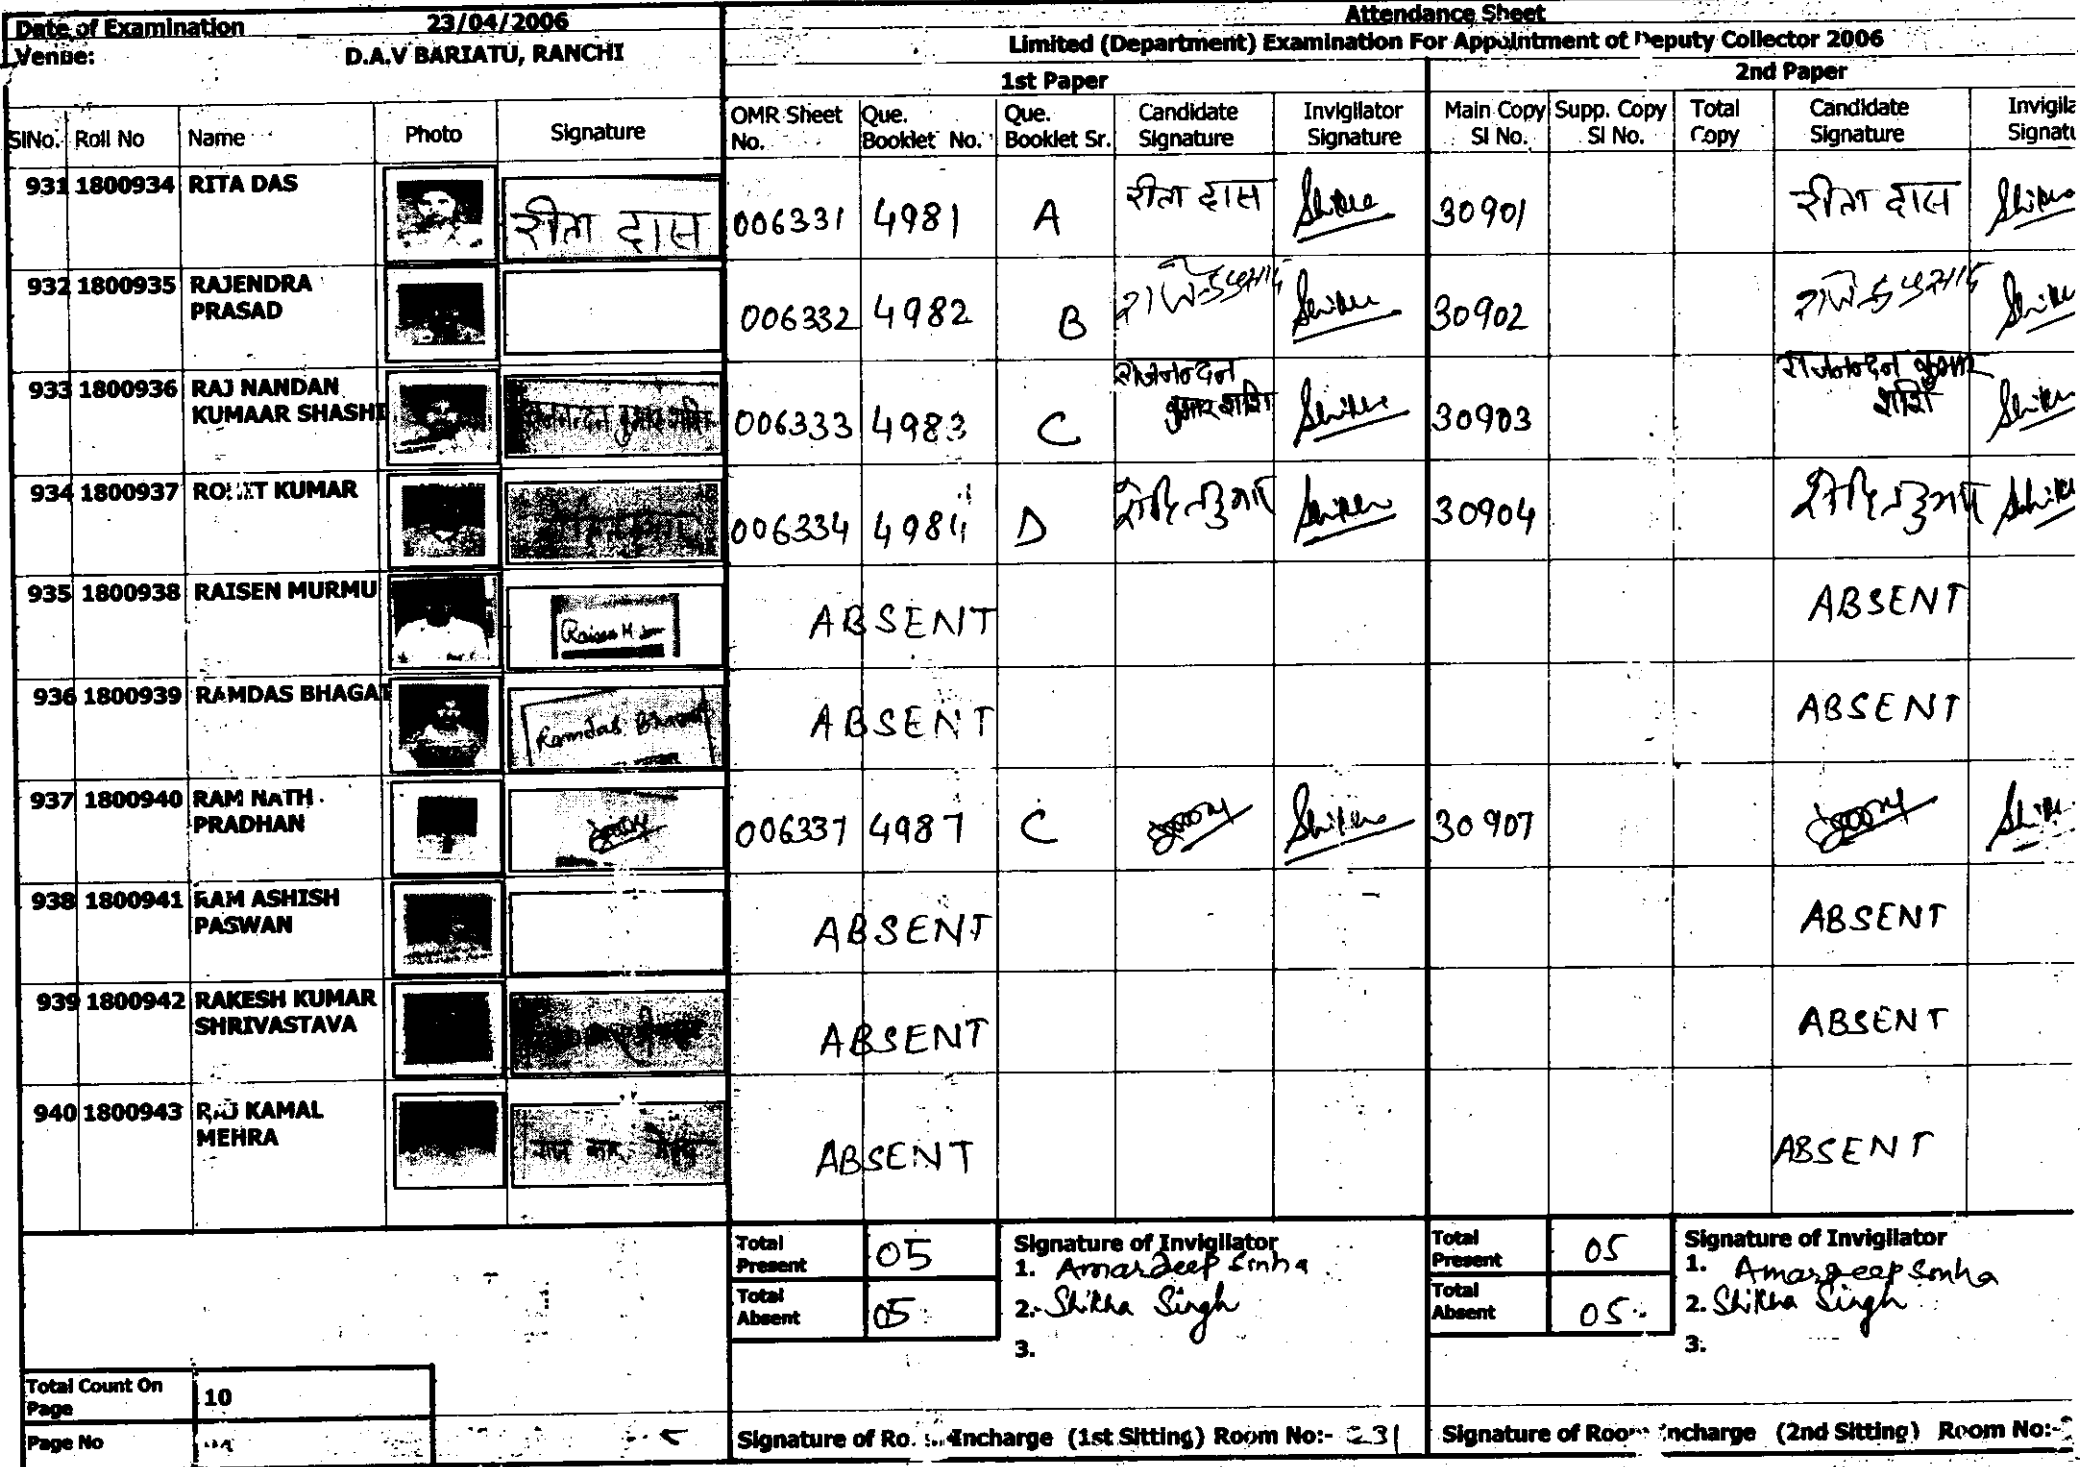 Date of Examination 23/04/2006 Attendance Sheet
Venue: D.A.V BARIATU, RANCHI Limited (Department) Examination For Appointment of Deputy Collector 2006
1st Paper 2nd Paper
SlNo. Roll No Name Photo Signature OMR Sheet No. Que. Booklet No. Que. Booklet Sr. Candidate Signature Invigilator Signature Main Copy Sl No. Supp. Copy Sl No. Total Copy Candidate Signature Invigila Signatu
931 1800934 RITA DAS रीता दास 006331 4981 A रीता दास 30901 रीता दास
932 1800935 RAJENDRA PRASAD 006332 4982 B 30902
933 1800936 RAJ NANDAN KUMAAR SHASHI 006333 4983 C राजनन्दन कुमार शशि 30903 राजनन्दन कुमार शशि
934 1800937 ROHIT KUMAR 006334 4984 D 30904
935 1800938 RAISEN MURMU ABSENT ABSENT
936 1800939 RAMDAS BHAGAT Ramdas Bhagat ABSENT ABSENT
937 1800940 RAM NATH PRADHAN 006337 4987 C 30907
938 1800941 RAM ASHISH PASWAN ABSENT ABSENT
939 1800942 RAKESH KUMAR SHRIVASTAVA ABSENT ABSENT
940 1800943 RAJ KAMAL MEHRA ABSENT ABSENT
Total Present 05 Signature of Invigilator Total Present 05 Signature of Invigilator
1. Amardeep Sinha 1. Amardeep Sinha
Total Absent 05 2. Shikha Singh Total Absent 05 2. Shikha Singh
3. 3.
Total Count On Page 10
Page No Signature of Room Incharge (1st Sitting) Room No:- 231 Signature of Room Incharge (2nd Sitting) Room No:-